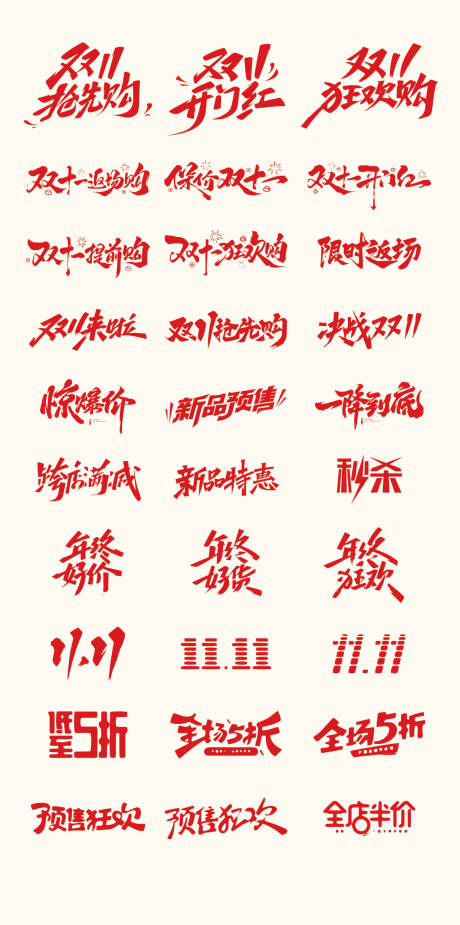 双11
抢先购
双11
开门红
双11
狂欢购
双十一返场购
保价双十一
双十一开门红
双十一提前购
双十一狂欢购
限时返场
双11来啦
双11抢先购
决战双11
惊爆价
新品预售
一降到底
跨店满减
新品特惠
秒杀
年终
好价
年终
好货
年终
狂欢
11.11
11.11
11.11
低至5折
全场5折
全场5折
预售狂欢
预售狂欢
全店半价